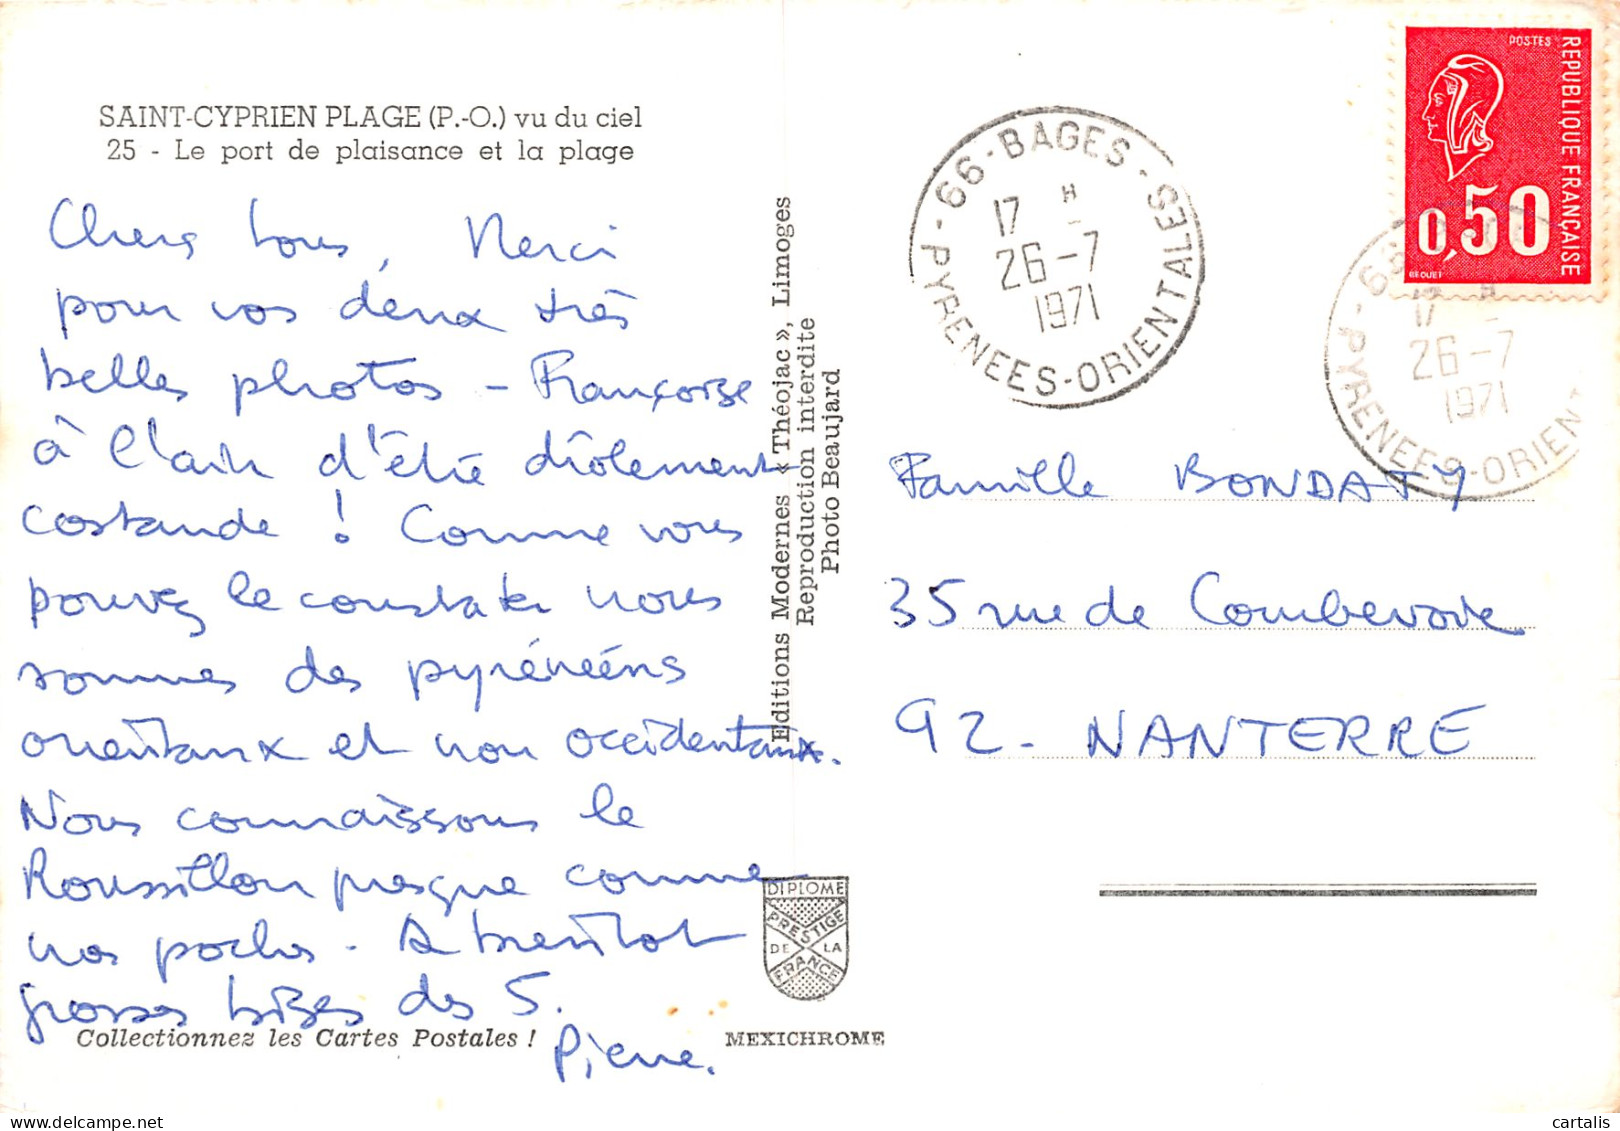 SAINT-CYPRIEN PLAGE (P.-O.) vu du ciel
25 - Le port de plaisance et la plage
Chers tous, Merci
pour vos deux très
belles photos - Françoise
à l'air d'être drôlement
costaude ! Comme vous
pouvez le constater nous
sommes des pyrénéens
orientaux et non occidentaux.
Nous connaissons le
Roussillon presque comme
nos poches - A bientot
grosses bises des 5.
Pierre.
Collectionnez les Cartes Postales !
Editions Modernes « Théojac », Limoges
Reproduction interdite
Photo Beaujard
DIPLOME
PRESTIGE
DE LA
FRANCE
MEXICHROME
66 - BAGES - PYRENEES-ORIENTALES
17 H
26-7
1971
POSTES
REPUBLIQUE FRANÇAISE
0,50
BEQUET
17 H
26-7
1971
PYRENEES-ORIENT
Famille BONDATY
35 rue de Courbevoie
92 - NANTERRE
cartalis
delcampe.net